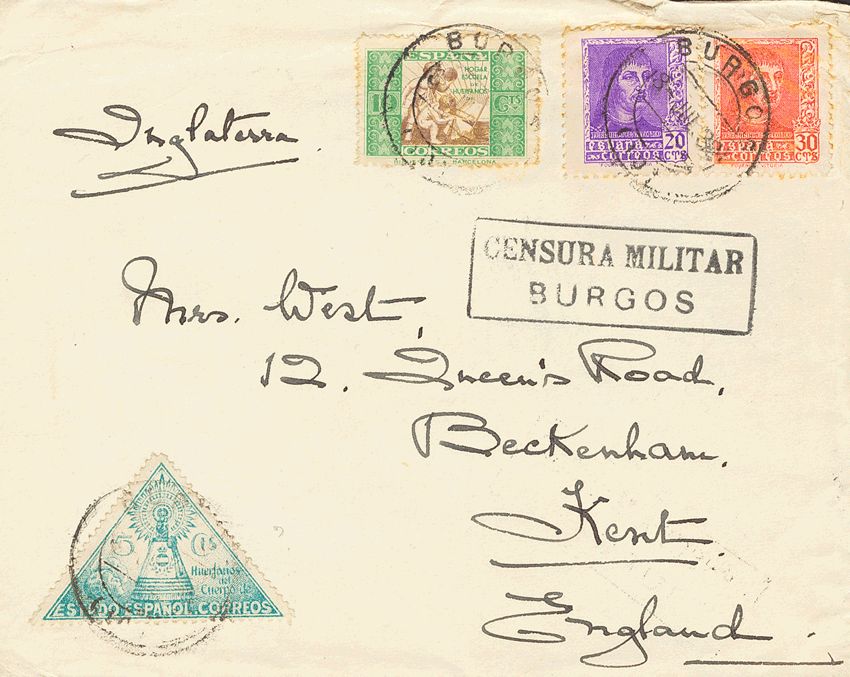 BURGOS
ESPAÑA
HOGAR
ESCUELA
DE
HUERFANOS
10 Cts
CORREOS
BARCELONA
BURGOS
20
CTS
ESPAÑA
CORREOS
30
CTS
ESPAÑA
CORREOS
Inglaterra
CENSURA MILITAR
BURGOS
Mrs. West,
12. Queen's Road,
Beckenham,
Kent
England
5 Cts
Huerfanos
del
Cuerpo de
ESTADO ESPAÑOL-CORREOS